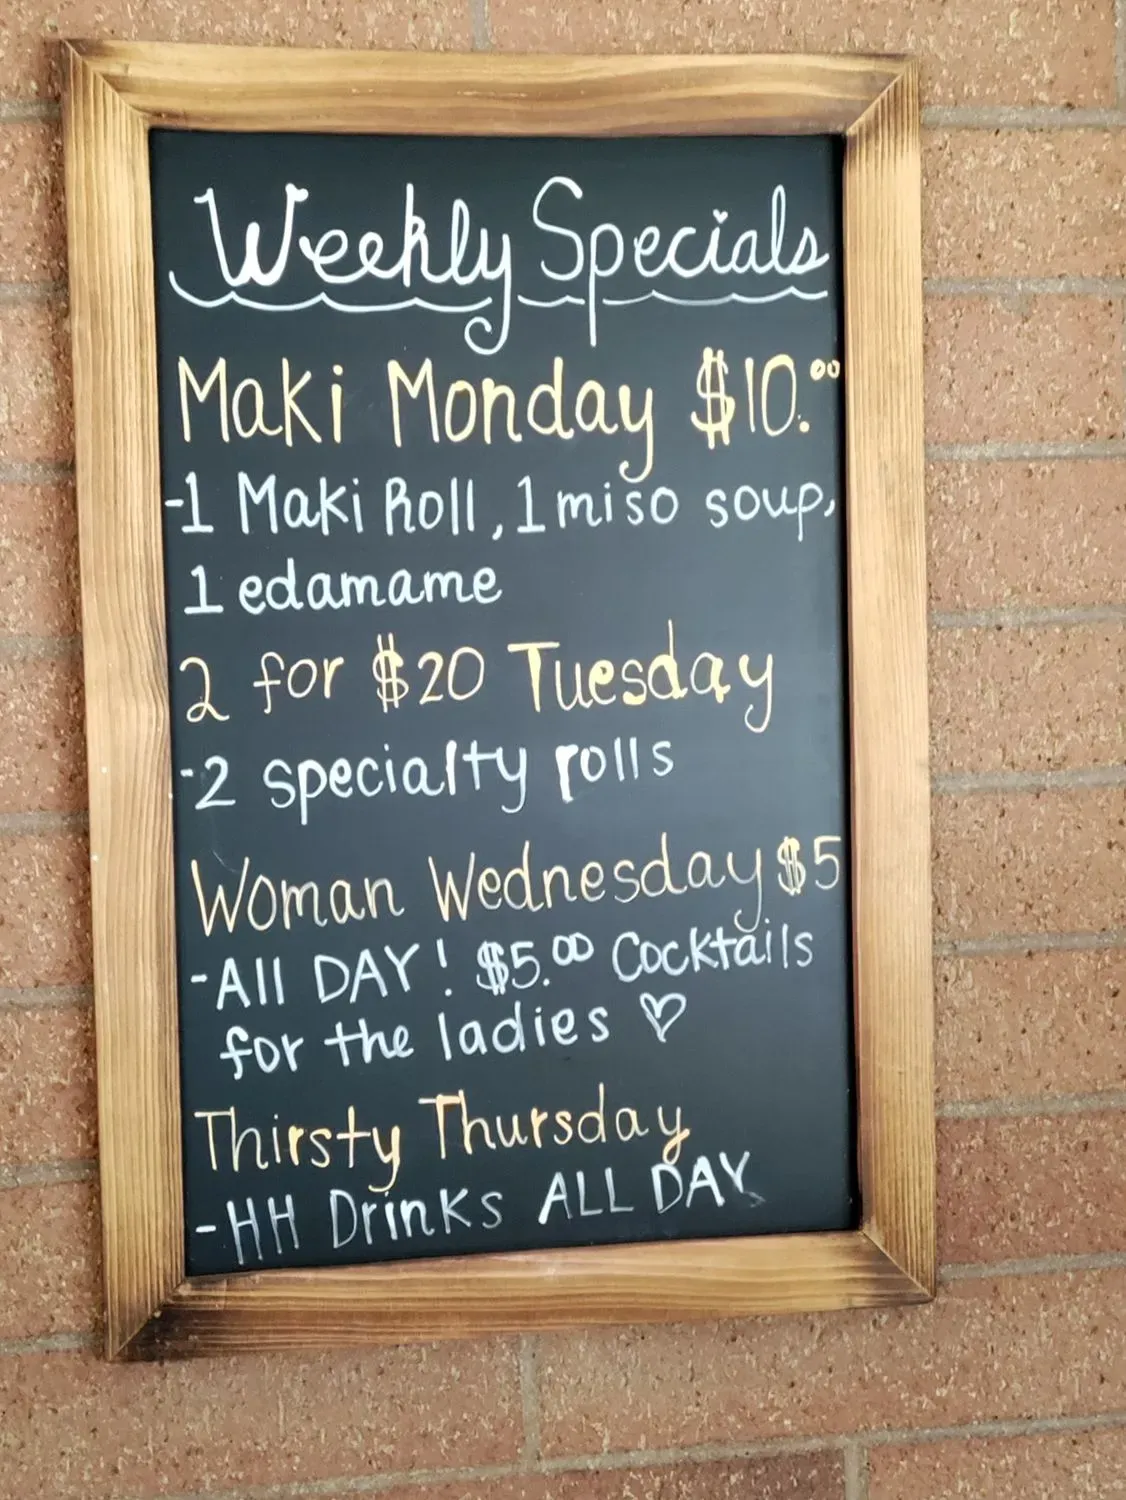 Weekly Specials
Maki Monday $10.00
-1 Maki Roll, 1 miso soup,
1 edamame
2 for $20 Tuesday
-2 specialty rolls
Woman Wednesday $5
-All DAY! $5.00 Cocktails
for the ladies ♡
Thirsty Thursday
-HH Drinks ALL DAY